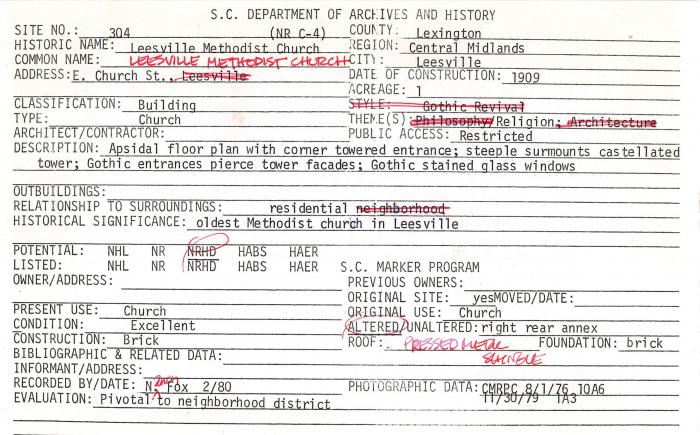 S.C. DEPARTMENT OF ARCHIVES AND HISTORY
SITE NO.: 304 (NR C-4) COUNTY: Lexington
HISTORIC NAME: Leesville Methodist Church REGION: Central Midlands
COMMON NAME: LEESVILLE METHODIST CHURCH CITY: Leesville
ADDRESS: E. Church St., Leesville DATE OF CONSTRUCTION: 1909
ACREAGE: 1
CLASSIFICATION: Building STYLE: Gothic Revival
TYPE: Church THEME(S): Philosophy/Religion; Architecture
ARCHITECT/CONTRACTOR: PUBLIC ACCESS: Restricted
DESCRIPTION: Apsidal floor plan with corner towered entrance; steeple surmounts castellated
tower; Gothic entrances pierce tower facades; Gothic stained glass windows
OUTBUILDINGS:
RELATIONSHIP TO SURROUNDINGS: residential neighborhood
HISTORICAL SIGNIFICANCE: oldest Methodist church in Leesville
POTENTIAL: NHL NR NRHD HABS HAER
LISTED: NHL NR NRHD HABS HAER S.C. MARKER PROGRAM
OWNER/ADDRESS: PREVIOUS OWNERS:
ORIGINAL SITE: yes MOVED/DATE:
PRESENT USE: Church ORIGINAL USE: Church
CONDITION: Excellent ALTERED/UNALTERED: right rear annex
CONSTRUCTION: Brick ROOF: PRESSED METAL FOUNDATION: brick
SHINGLE
BIBLIOGRAPHIC & RELATED DATA:
INFORMANT/ADDRESS:
RECORDED BY/DATE: N. Fox 2/80 PHOTOGRAPHIC DATA: CMRPC 8/1/76 10A6
EVALUATION: Pivotal to neighborhood district 11/30/79 1A3